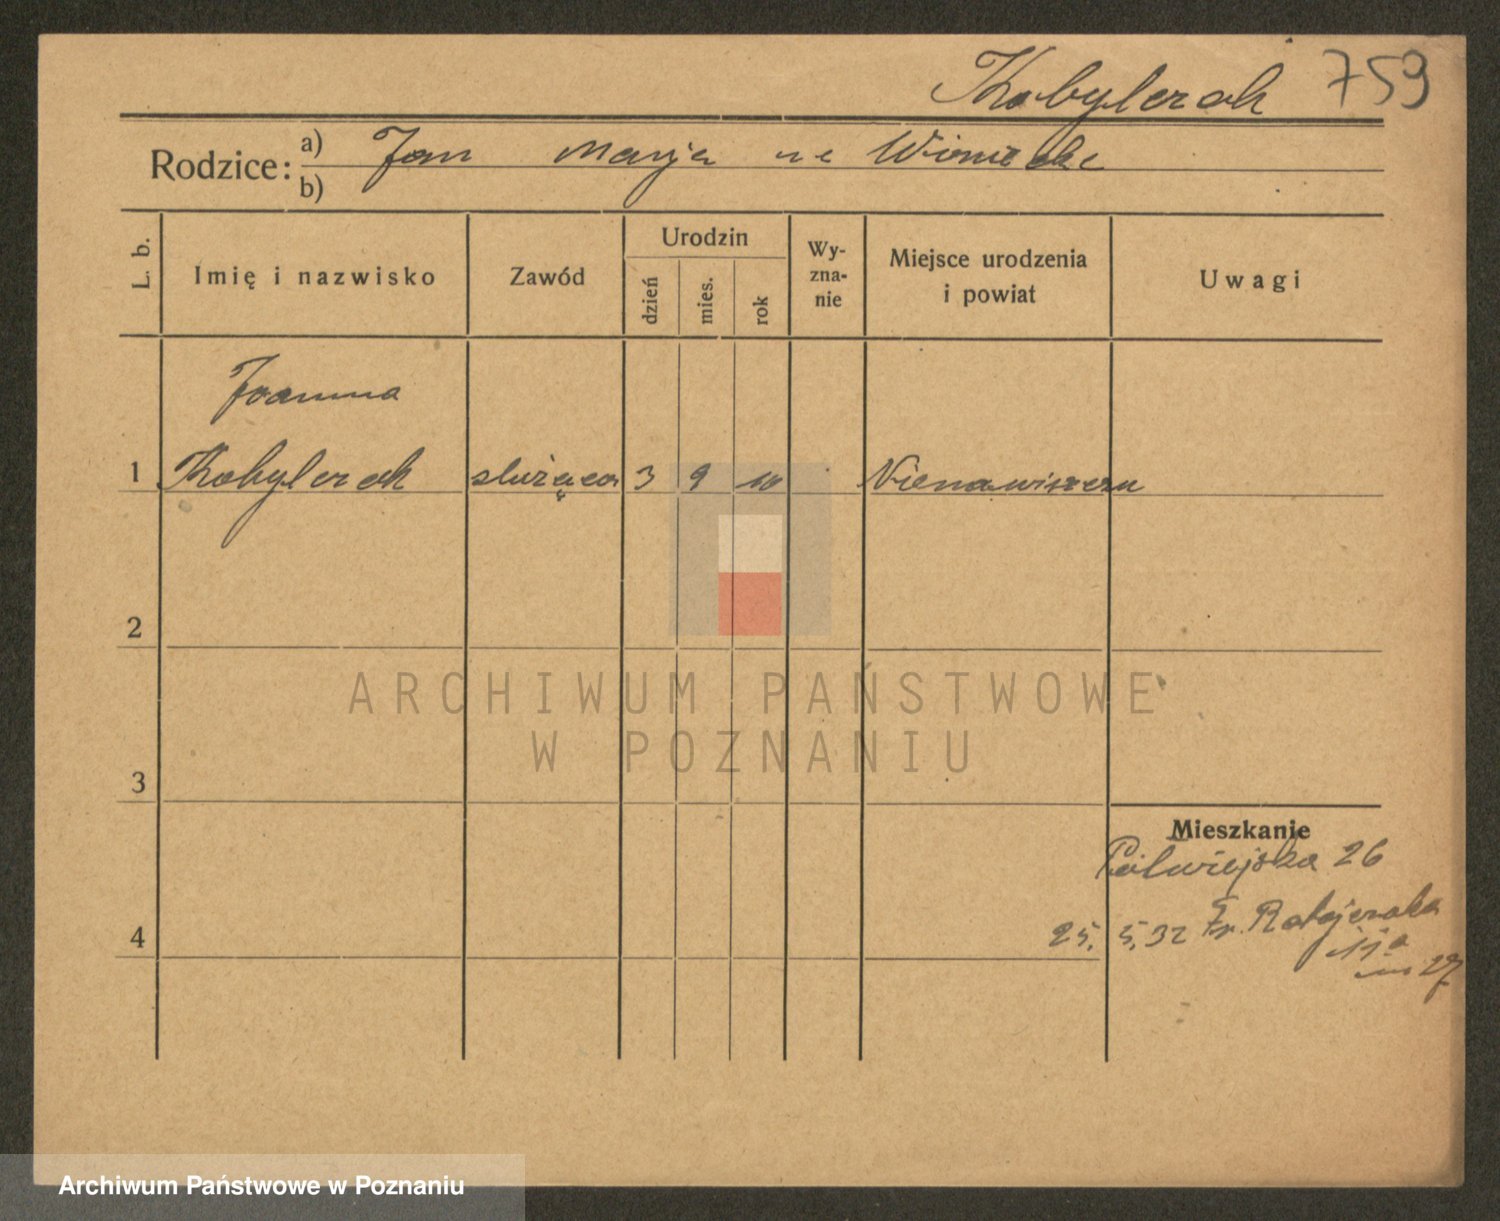 Kobylerak 759
Rodzice: a) Jan Marja
b)
L. b.
Imię i nazwisko
Zawód
Urodzin
dzień
mies.
rok
Wy-
zna-
nie
Miejsce urodzenia
i powiat
Uwagi
Joanna
1 Kobylerak służąca 3 9 10 Nienawiszczu
2
ARCHIWUM PAŃSTWOWE
W POZNANIU
3
Mieszkanie
Półwiejska 26
4 25. 5.32 Fr. Ratajczaka
11a
m 27
Archiwum Państwowe w Poznaniu